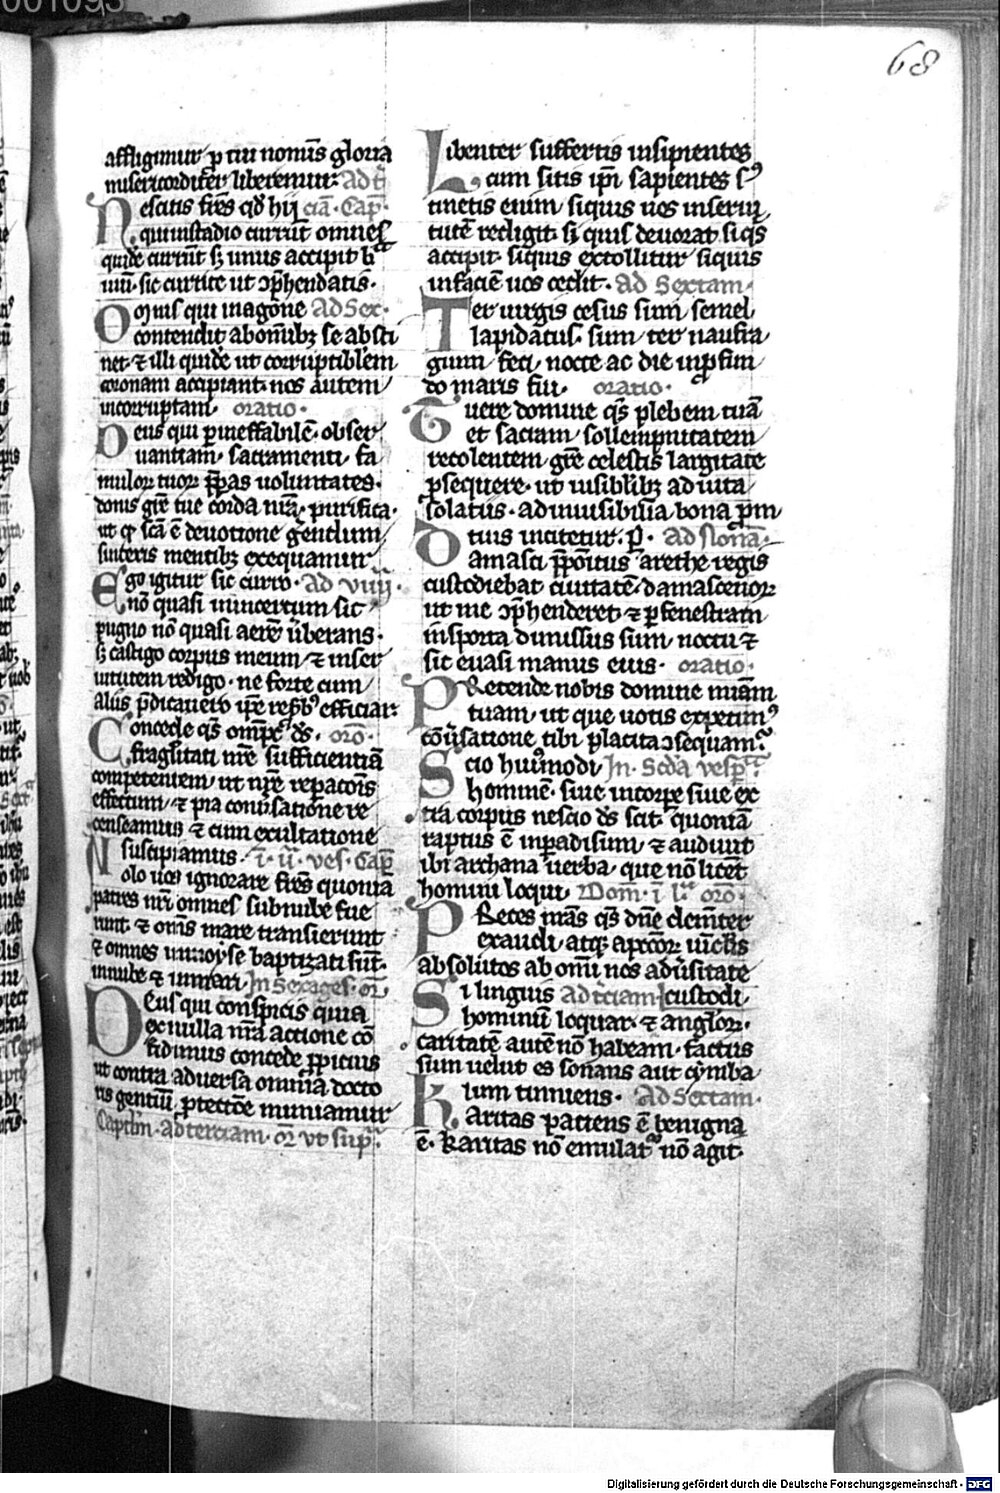 68
affligimur p tui nominis gloria
misericordit̄ liberemur: Ad t̄
Nescitis fr̄es qd̄ hij ciā. Cap̄.
qui in stadio currūt omnes
quidē currūt sꝫ unus accipit b
uiū. sic currite ut ꝯp̄hendatis.
Omnis qui in agone Ad Sex.
contendit ab om̄ibꝫ se absti
net. ⁊ illi quidē ut corruptiblem
coronam accipiant. nos autem
incorruptam. oratio.
Deus qui p ineffabilē. obser
uantiam. sacramenti. fa
muloꝝ tuoꝝ p̄paras uoluntates.
donis grē tue corda nr̄a. purifica.
ut qͥ scā ē deuotione gentium
sinceris mentibꝫ exequamur.
Ego igitur sic curro. Ad viiij.
nō quasi in incertum sic
pugno nō quasi aerē ūberans.
sꝫ castigo corpus meum ⁊ in ser
uitutem redigo. ne forte cum
aliis p̄dicauero ip̄e rep̄b efficiar:
Concede qs̄ omp̄c ds̄. orō.
fragilitati nr̄e sufficientiā
competentem ut nr̄e repacōis
effectum. ⁊ pia conūsatione re
censeamus ⁊ cum exultatione
suscipiamus. ī. ii. ves. Cap̄
Nolo uos ignorare fr̄es quonia
patres nr̄i omnes sub nube fue
runt. ⁊ om̄s mare transierunt
⁊ omnes in moyse baptizati sūt.
in nube ⁊ in mari. In Sexages. or̄
Deus qui conspicis quia
ex nulla nr̄a actione cō
fidimus concede p̄picius
ut contra aduersa omnia docto
ris gentiū ptectōe muniamur
Captl̄m. ad terciam. or̄ vt sup̄.
Libenter suffertis insipientes
cum sitis ip̄i sapientes sꝰ
tinetis enim siquis uos in serui
tutē redigit. sꝫ quis deuorat. si qs̄
accipit. siquis extollitur siquis
in faciē uos cedit. Ad Sextam.
Ter uirgis cesus sum semel
lapidatus. sum. ter naufra
gium feci. nocte ac die in pfun
do maris fui. oratio.
Tuere domine qs̄ plebem tuā
et sacram sollempnitatem
recolentem grē celestis largitate
psequere. ut uisiblibꝫ adiuta
solatiis. ad inuisibilia bona pm
tius incitetur. p̄. Ad Nonā.
Damasci p̄positus arethe regis
custodiebat ciuitatē damascenoꝝ
ut me ꝯp̄henderet. ⁊ p fenestram
in sporta dimissus sum noctu ⁊
sic euasi manus eius. oratio.
Pretende nobis domine miam̄
tuam. ut que uotis expetimꝰ
cōūsatione tibi placita ꝯsequam.
Scio huiꝰmodi In. Scd̄a vesp̄.
hominē. siue in corpe siue ex
tra corpus nescio ds̄ scit. quoniā
raptus ē in padisum. ⁊ audiuit
ibi archana uerba. que nō licet
homini loqui. Dom̄. ī lͣ orō.
Preces nr̄as qs̄ dn̄e clem̄ter
exaudi. atqꝫ a pccōꝝ uīclis
absolutos ab om̄i nos adūsitate
Si linguis ad t̄ciam. custodi.
hominū loquar. ⁊ angloꝝ.
caritatē autē nō habeam. factus
sum uelut es sonans aut cymba
lum tinniens. Ad Sextam.
Karitas patiens ē benigna
ē. karitas nō emulatͬ nō agit.
Digitalisierung gefördert durch die Deutsche Forschungsgemeinschaft - DFG